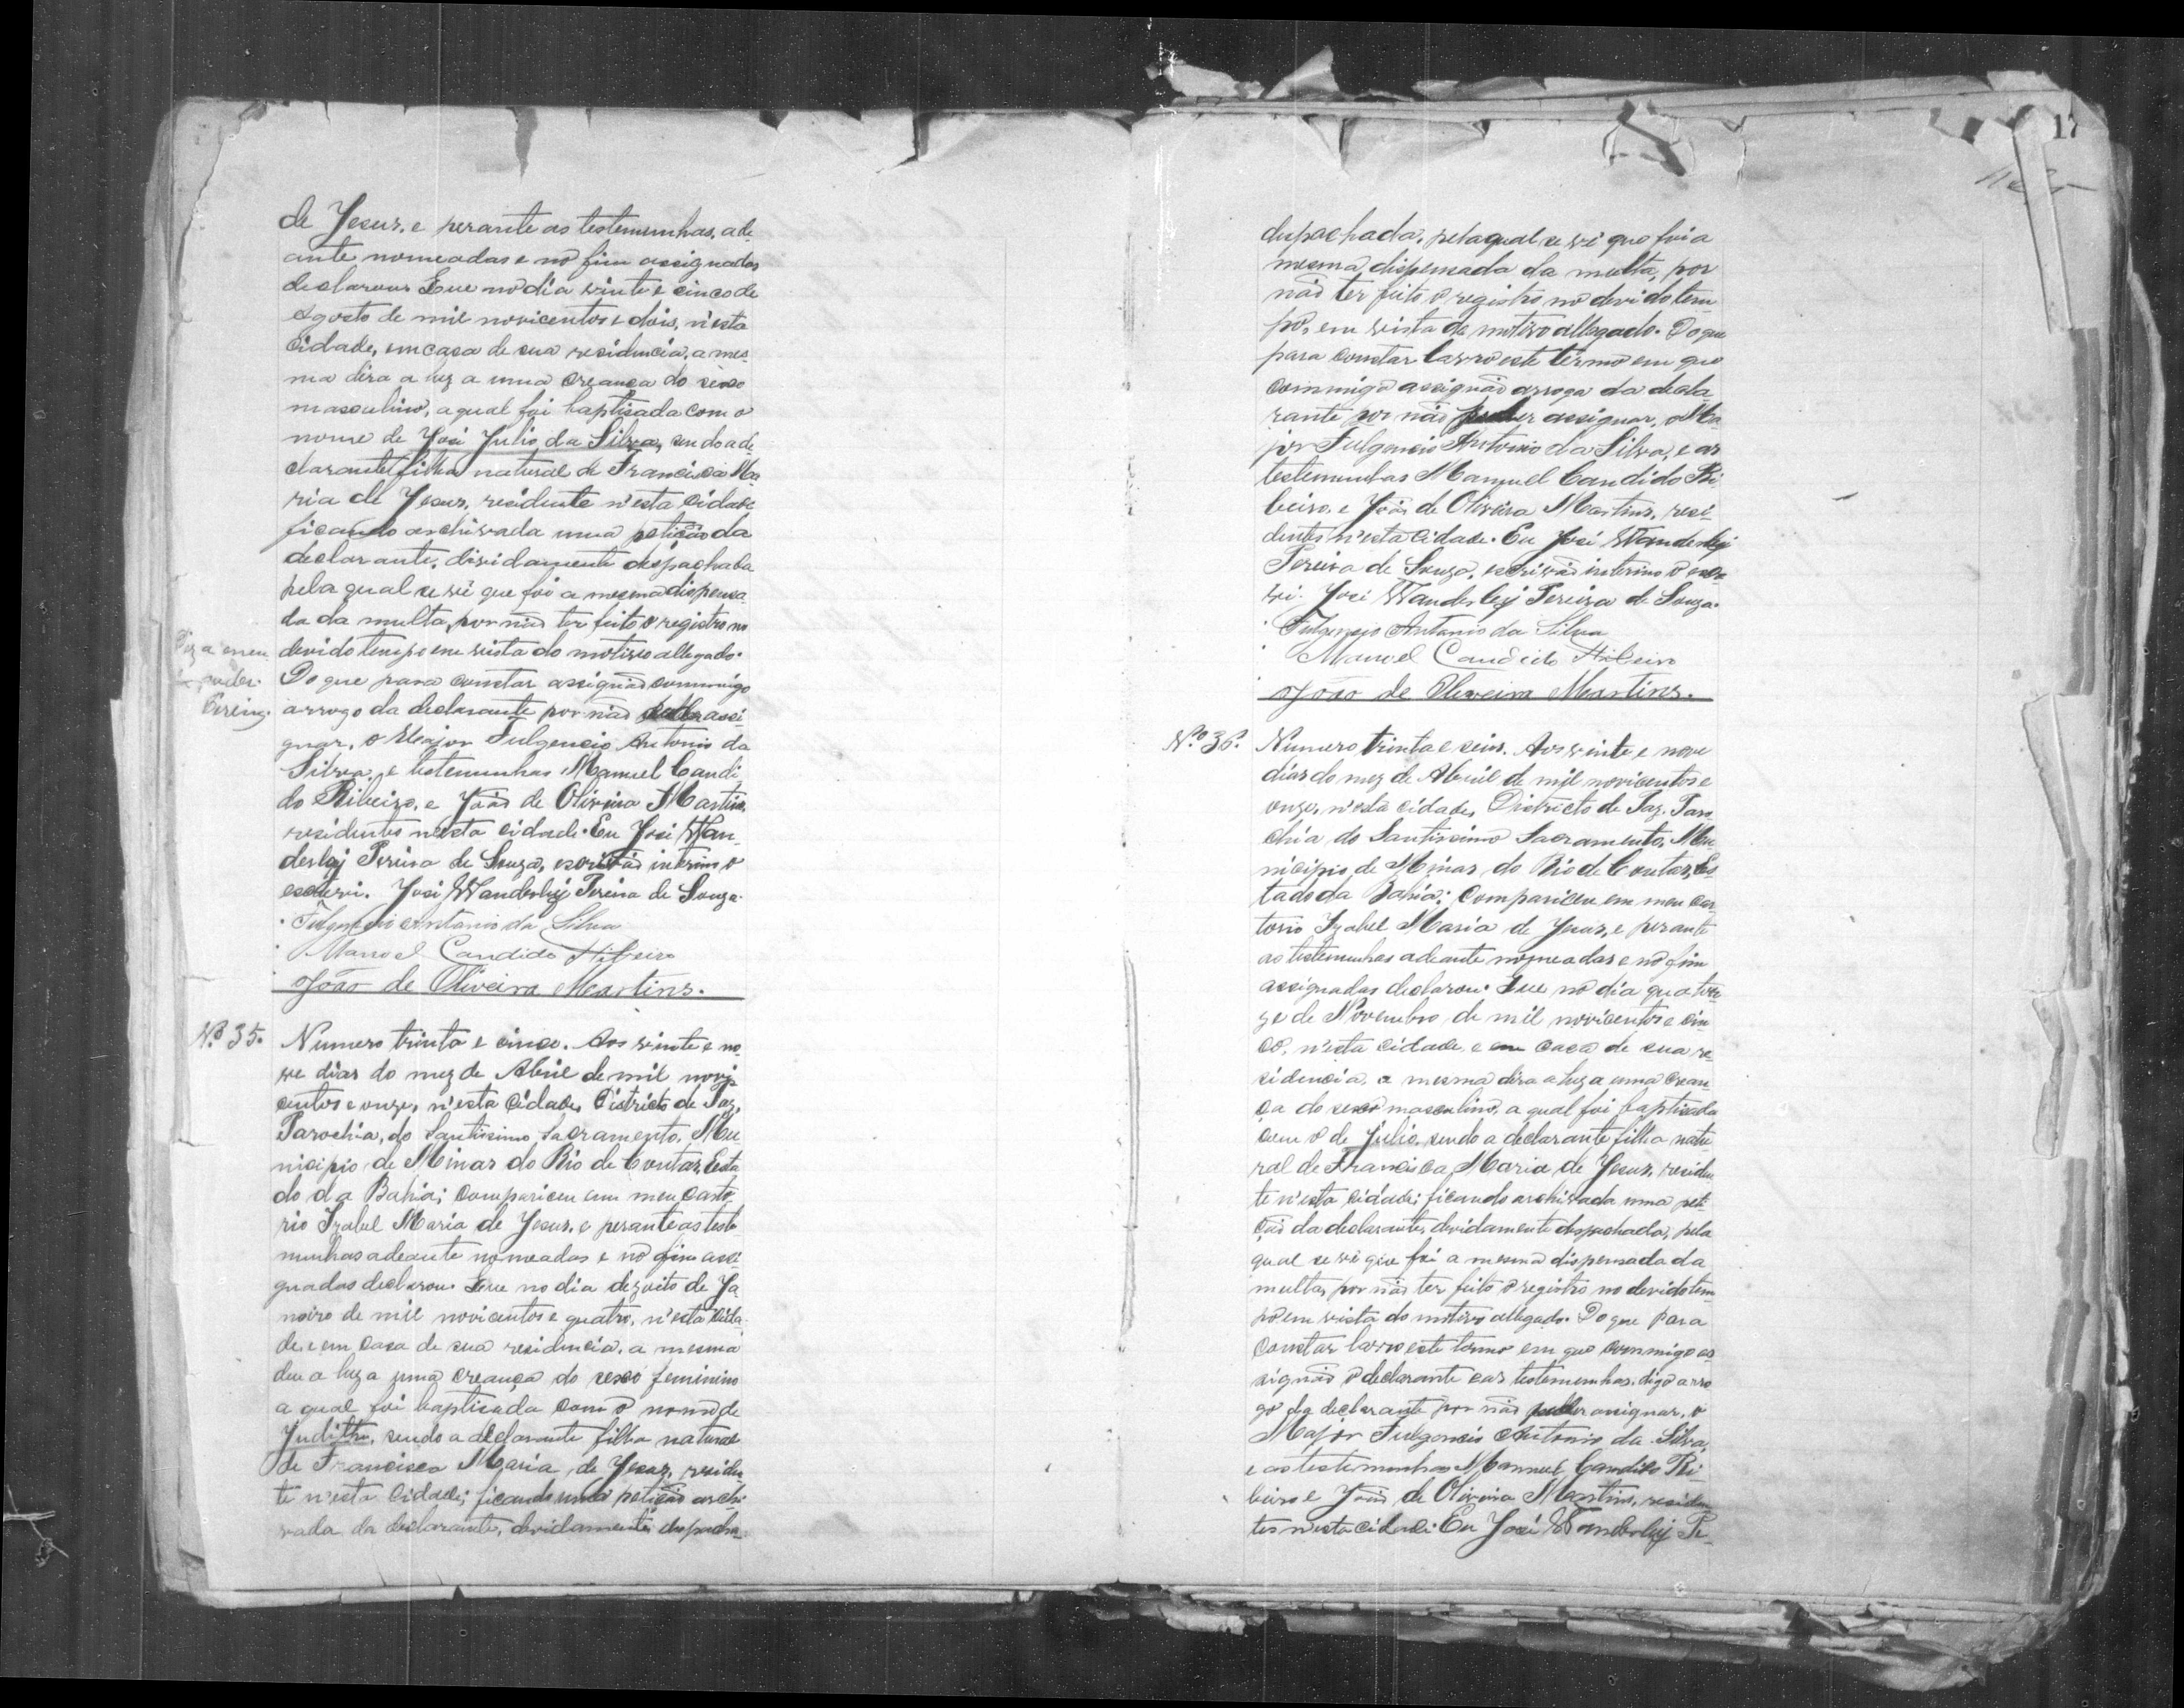 de Jesus, e perante as testemunhas, ade-
ante nomeadas e no fim assignadas
declarou: Que no dia vinte e cinco de
Agosto de mil novicentos e dois, n'esta
Cidade, em casa de sua residencia, a mes-
ma déra a luz a uma creança do sexo
masculino, a qual foi baptisada com o
nome de José Julio da Silva, sendo a de-
clarante filha natural de Francisca Ma-
ria de Jesus, residente n'esta cidade
ficando archivada uma petição da
declarante, devidamente despachada
pela qual se vê que foi a mesma dispensa-
da da multa, por não ter feito o registro no
devido tempo em vista do motivo allegado.
Do que para constar assignão commigo
arrogo da declarante por não assi-
gnar, o Major Fulgencio Antonio da
Silva, e testemunhas Manuel Candi-
do Ribeiro, e João de Oliveira Martins,
residentes nesta cidade. Eu José Wan-
derley Pereira de Souza, escrivão interino o
escrevi. José Wanderley Pereira de Souza.
Fulgencio Antonio da Silva
Manoel Candido Ribeiro
João de Oliveira Martins.
Nº 35. Numero trinta e cinco. Aos vinte e no-
ve dias do mez de Abril de mil novi-
centos e onze, n'esta Cidade, Districto de Paz,
Parochia, do Santissimo Sacramento, Mu-
nicipio de Minas do Rio de Contas, Esta-
do da Bahia; compariceu em meu Carto-
rio Izabel Maria de Jesus, e perante as teste-
munhas adeante nomeadas e no fim assi-
gnadas declarou: Que no dia dezoito de Ja-
neiro de mil novicentos e quatro, n'esta cida-
de, e em casa de sua residencia, a mesma
deu a luz a uma creança do sexo feminino
a qual foi baptisada com o nome de
Judith, sendo a declarante filha natural
de Francisca Maria de Jesus, residen-
te n'esta Cidade; ficando uma petição archi-
vada da declarante, devidamente despacha-
17
despachada, pela qual se vê que foi a
mesma dispensada da multa, por
não ter feito o registro no devido tem-
po, em vista do motivo allegado. Do que
para constar lavro este termo em que
commigo assignão arrogo da decla-
rante por não poder assignar, o Ma-
jor Fulgencio Antonio da Silva, e as
testemunhas Manuel Candido Ri-
beiro, e João de Oliveira Martins, resi-
dentes n'esta Cidade. Eu José Wanderley
Pereira de Souza, escrivão interino o escre-
vi. José Wanderley Pereira de Souza.
Fulgencio Antonio da Silva
Manoel Candido Ribeiro
João de Oliveira Martins.
Nº 36. Numero trinta e seis. Aos vinte e nove
dias do mez de Abril de mil novicentos e
onze, n'esta cidade, Districto de Paz, Paro-
chia do Santissimo Sacramento, Mu-
nicipio de Minas do Rio de Contas, Es-
tado da Bahia; Compariceu em meu Car-
torio Izabel Maria de Jesus, e perante
as testemunhas adeante nomeadas e no fim
assignadas declarou: Que no dia quator-
ze de Novembro de mil novicentos e cin-
co, n'esta cidade, e em casa de sua re-
sidencia, a mesma déra a luz a uma crean-
ça do sexo masculino, a qual foi baptisada
com o de Julio, sendo a declarante filha natu-
ral de Francisca Maria de Jesus, residen-
te n'esta Cidade; ficando archivada uma peti-
ção da declarante, devidamente despachada, pela
qual se vê que foi a mesma dispensada da
multa, por não ter feito o registro no devido tem-
po em vista do motivo allegado. Do que para
Constar lavro este termo em que commigo as-
signão o declarante e as testemunhas, digo arro-
go da declarante por não poder assignar, o
Major Fulgencio Antonio da Silva,
e as testemunhas Manuel Candido Ri-
beiro e João de Oliveira Martins, residen-
tes n'esta cidade. Eu José Wanderley Pe-